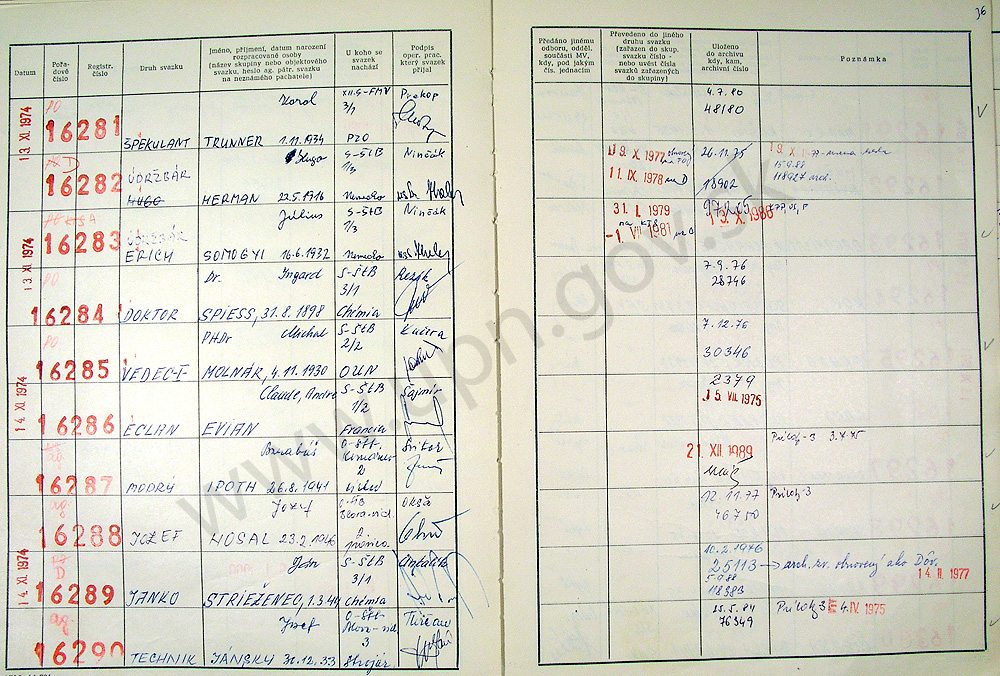 36
Datum
Pořadové číslo
Registr. číslo
Druh svazku
Jméno, příjmení, datum narození rozpracované osoby (název skupiny nebo objektového svazku, heslo ag. pátr. svazku na neznámého pachatele)
U koho se svazek nachází
Podpis oper. prac. který svazek přijal
Předáno jinému odboru, odděl. součásti MV, kdy, pod jakým čís. jednacím
Převedeno do jiného druhu svazku (zařazen do skup. svazku číslo - nebo uvést čísla svazků zařazených do skupiny)
Uloženo do archivu kdy, kam, archivní číslo
Poznámka
13 XI. 1974
PO
16281
ŠPEKULANT
Karol
TRUNNER 1.11.1934
XII.S-FMV
3/1
PZO
Prekop
4.7.80
48180
16282
ÚDRŽBÁR
HUGO
Hugo
HERMAN 22.5.1916
S-ŠtB
1/3
Nemecko
Ninčák
9. X. 1977
11. IX. 1978
na D
26.11.75
18902
15.9.88
118927 arch.
13 XI. 1974
16283
ERICH
Július
SOMOGYI 16.6.1932
S-ŠtB
1/3
Nemecko
Ninčák
31. I. 1979
-1. VII 1981
97205
13. X. 1986
PO
16284
DOKTOR
Dr. Ingard
SPIESS, 31.8.1898
S-ŠtB
3/1
Chémia
Rezák
7.9.76
28746
PO
16285
VEDEC-I
PHDr Michal
MOLNÁR, 4.11.1930
S-ŠtB
2/2
OUN
Kučera
7.12.76
30346
14 XI. 1974
16286
ECLAN
Claude, André
EVIAN
S-ŠtB
1/2
Francia
Šajmír
2379
15. VII. 1975
16287
MODRÝ
Barnabáš
IPOTH 26.8.1941
2
21. XII. 1989
Príloh-3 3.7.75
ag.
16288
JOZEF
Jozef
HOSAL 23.2.1946
Okša
12.11.77
46750
Príloh-3
14 XI. 1974
D
16289
JANKO
Ján
STRIEŽENEC, 1.3.44
S-ŠtB
3/1
Chémia
10.2.1976
25113 → arch. zv. obnovený ako Dôv.
14. II. 1977
5.9.88
118383
ag.
16290
TECHNIK
Jozef
JÁNSKY 31.12.33
3
Strojár.
25.5.84
76349
Príloh 3
4. IV. 1975
www.upn.gov.sk